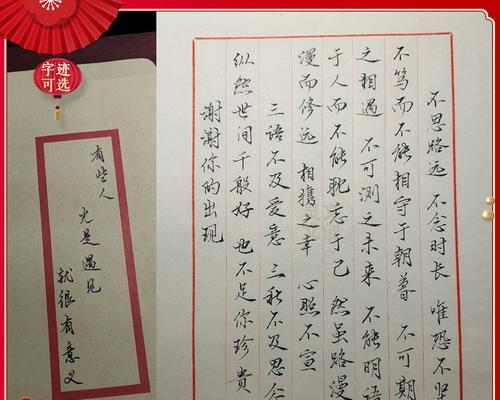 字迹
可选
不思路远 不念时长 唯恐不坚
不笃而不能相守于朝暮 不可期
之相遇 不可测之未来 不能明语
于人而不能耽忘于己 然虽路漫
漫而修远 相携之幸 心照不宣
三语不及爱意 三秋不及思念
纵然世间千般好 也不足你珍贵
谢谢你的出现
有些人
光是遇见
就很有意义